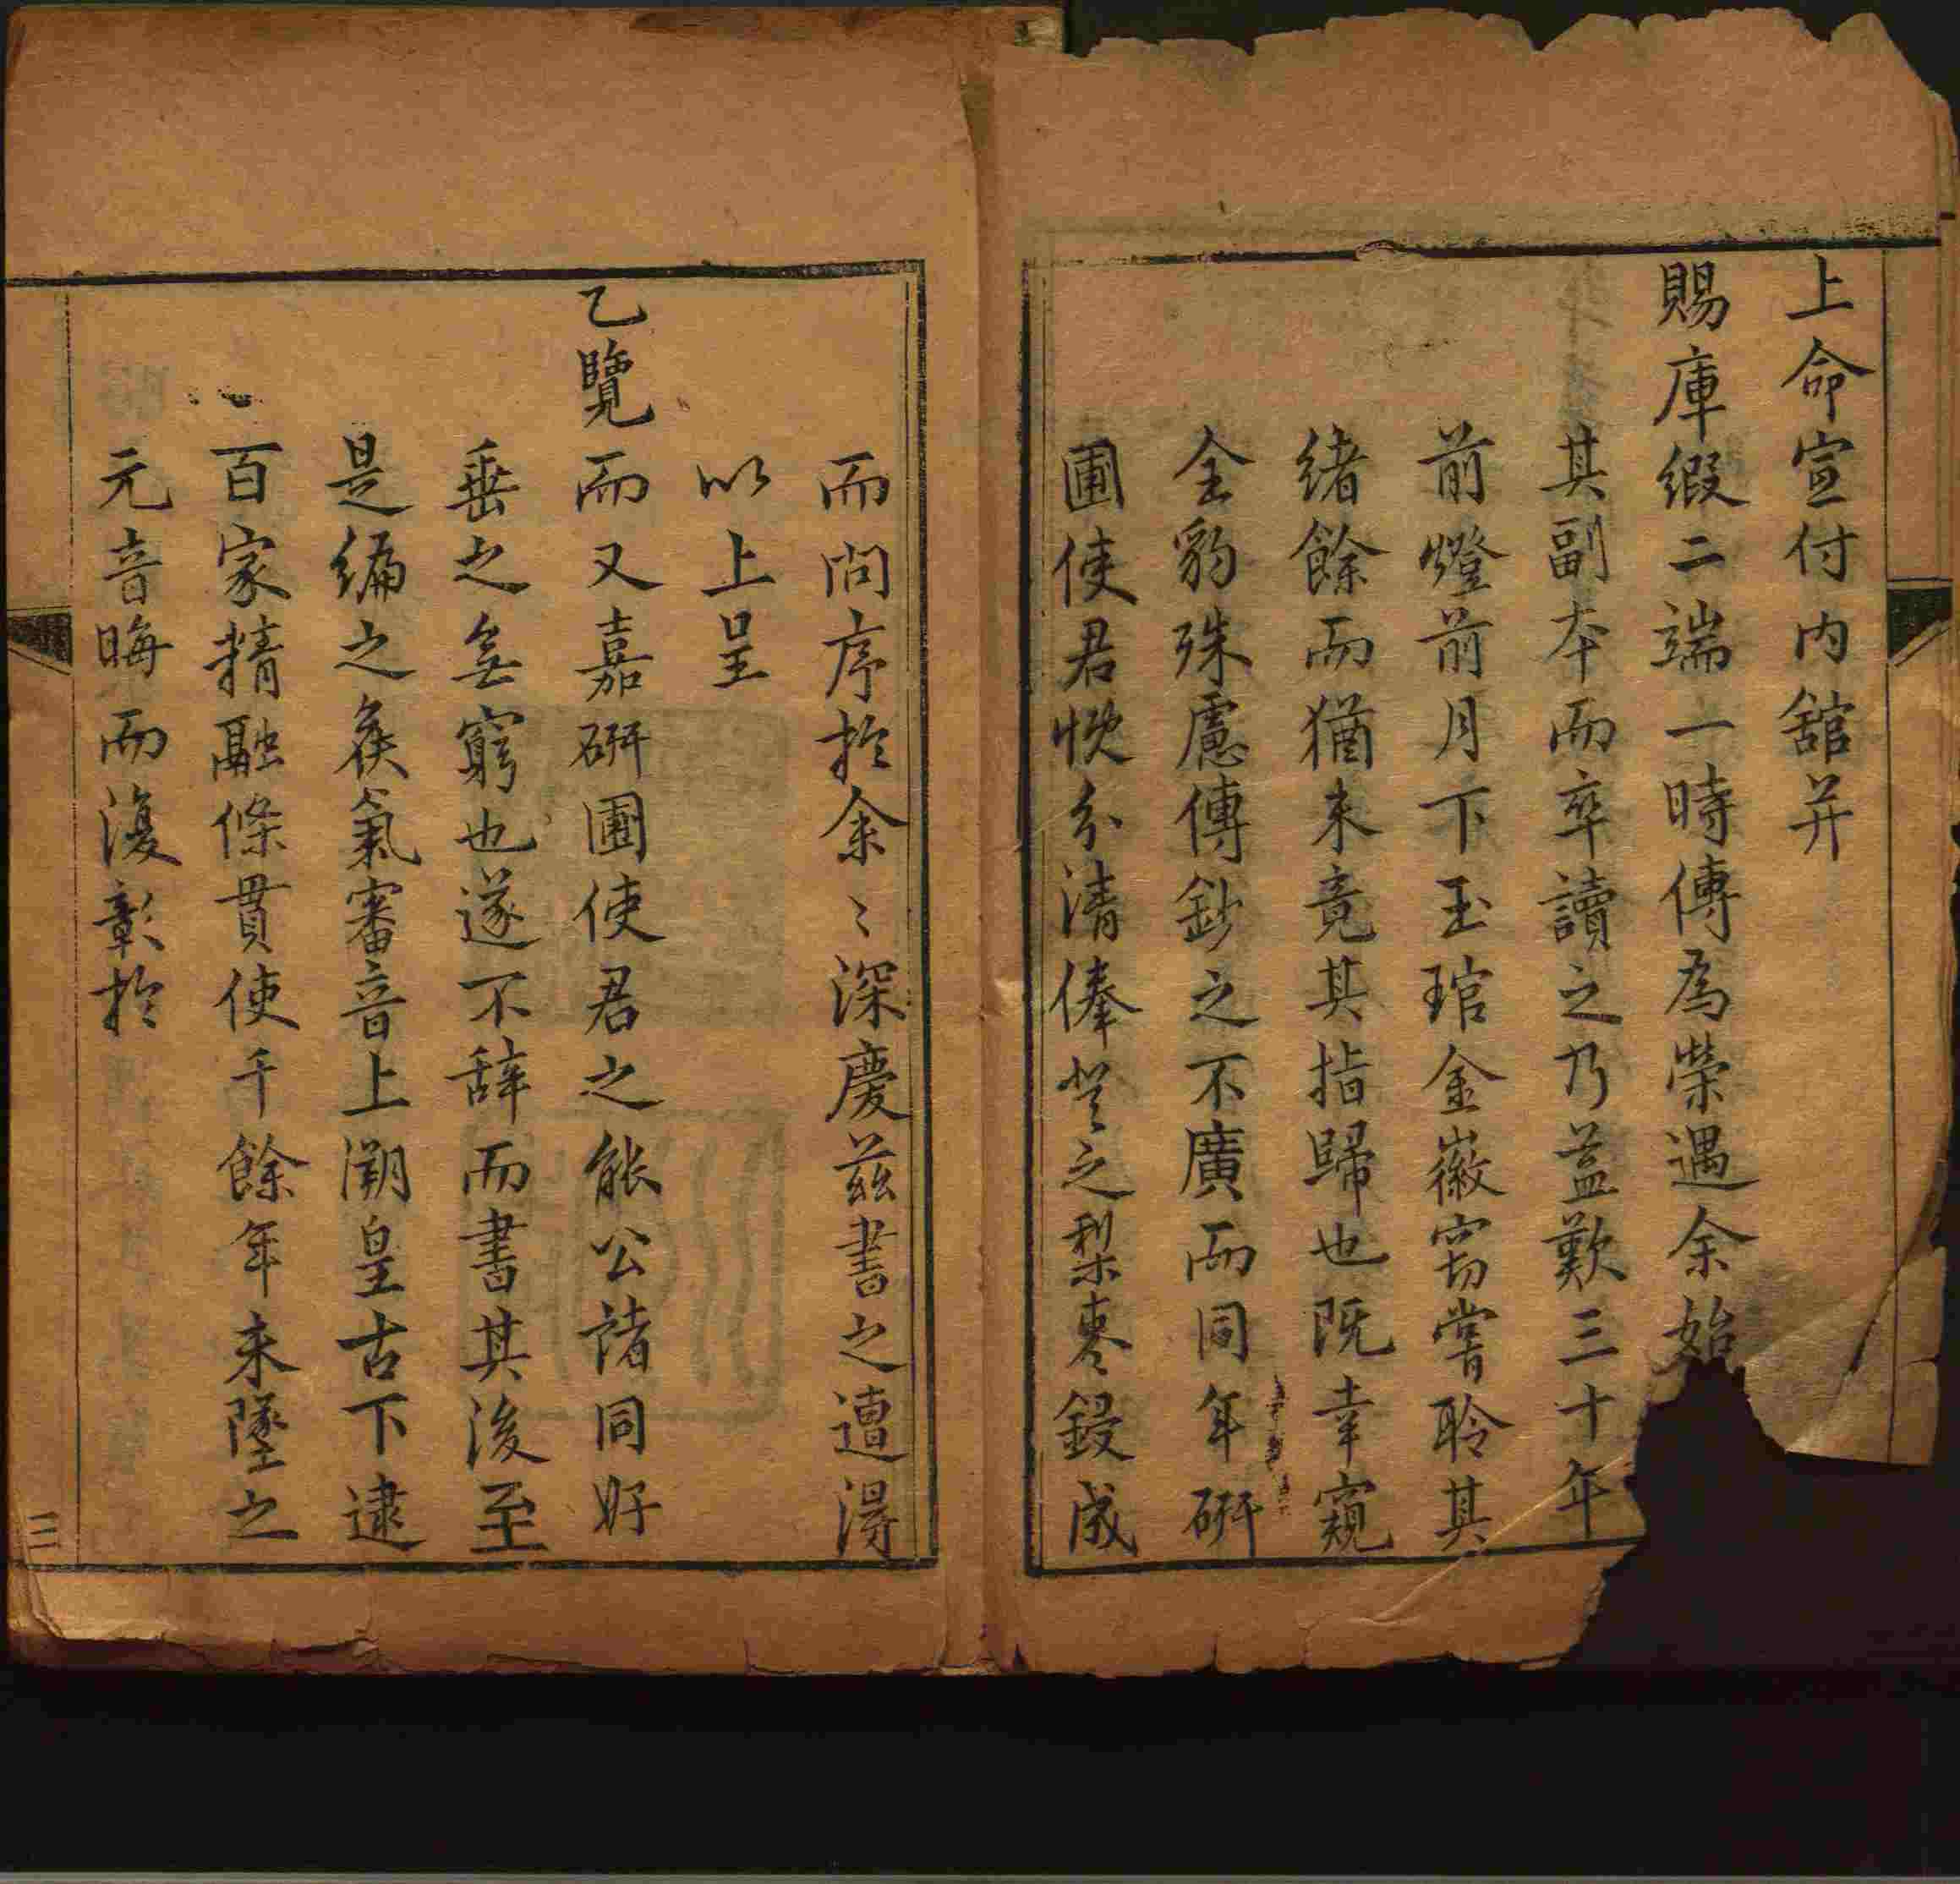 上命宣付内舘并
賜庫緞二端一時傳為榮遇余始
其副本而卒讀之乃益歎三十年
前燈前月下玉琯金徽窃嘗聆其
緒餘而猶未竟其指歸也既幸窺
全豹殊慮傳鈔之不廣而同年硏
圃使君慨分清俸登之梨棗鋟成
而問序於余〻深慶茲書之遭得
以上呈
乙覽而又嘉硏圃使君之能公諸同好
垂之無窮也遂不辞而書其後至
是編之矦氣審音上溯皇古下逮
百家精融條貫使千餘年来墜之
元音晦而復彰於
三